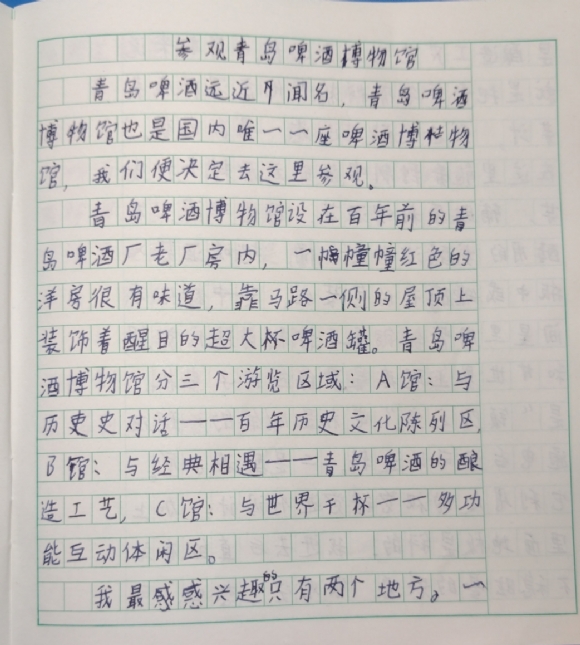 参观青岛啤酒博物馆
青岛啤酒远近月闻名，青岛啤酒
博物馆也是国内唯一一座啤酒博物
馆，我们便决定去这里参观。
青岛啤酒博物馆设在百年前的青
岛啤酒厂老厂房内，一幢幢红色的
洋房很有味道，靠马路一侧的屋顶上
装饰着醒目的超大杯啤酒罐。青岛啤
酒博物馆分三个游览区域：A馆：与
历史史对话——百年历史文化陈列区，
B馆：与经典相遇——青岛啤酒的酿
造工艺，C馆：与世界干杯——多功
能互动体闲区。
我最感感兴趣的只有两个地方。一